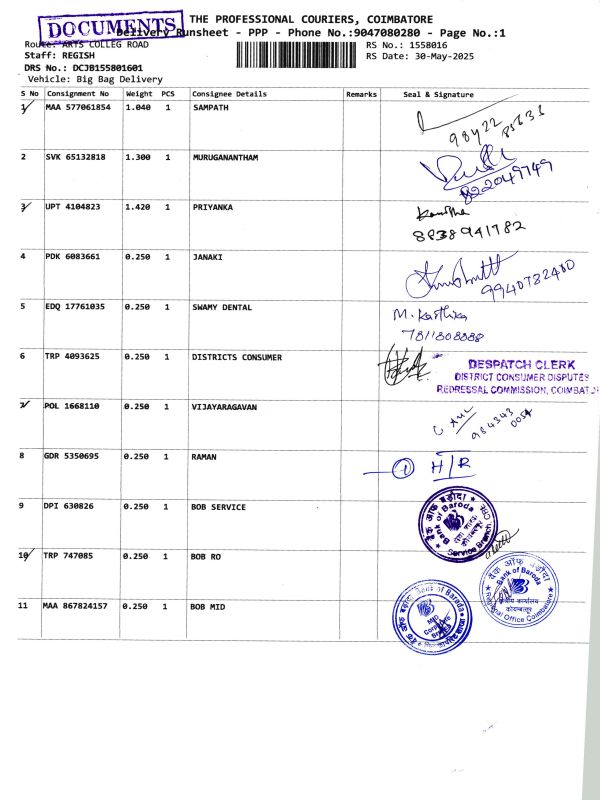 DOCUMENTS
THE PROFESSIONAL COURIERS, COIMBATORE
Delivery Runsheet - PPP - Phone No.:9047080280 - Page No.:1
Route: ARTS COLLEG ROAD
RS No.: 1558016
Staff: REGISH
RS Date: 30-May-2025
DRS No.: DCJB155801601
Vehicle: Big Bag Delivery
S No Consignment No Weight PCS Consignee Details Remarks Seal & Signature
1 MAA 577061854 1.040 1 SAMPATH
98422 85631
2 SVK 65132818 1.300 1 MURUGANANTHAM
822049749
3 UPT 4104823 1.420 1 PRIYANKA
8838941782
4 PDK 6083661 0.250 1 JANAKI
9940782480
5 EDQ 17761035 0.250 1 SWAMY DENTAL M. Karthika
7811808888
6 TRP 4093625 0.250 1 DISTRICTS CONSUMER
DESPATCH CLERK
DISTRICT CONSUMER DISPUTES
REDRESSAL COMMISSION, COIMBATJ
7 POL 1668110 0.250 1 VIJAYARAGAVAN
984343
0054
8 GDR 5350695 0.250 1 RAMAN
1 H/R
9 DPI 630826 0.250 1 BOB SERVICE
बैंक ऑफ बड़ौदा
Bank of Baroda
Service Branch CBE
10 TRP 747085 0.250 1 BOB RO
बैंक ऑफ बड़ौदा
Bank of Baroda
क्षेत्रीय कार्यालय
कोयम्बत्तूर
Regional Office Coimbatore
11 MAA 867824157 0.250 1 BOB MID
Bank of Baroda
MID
Corporate